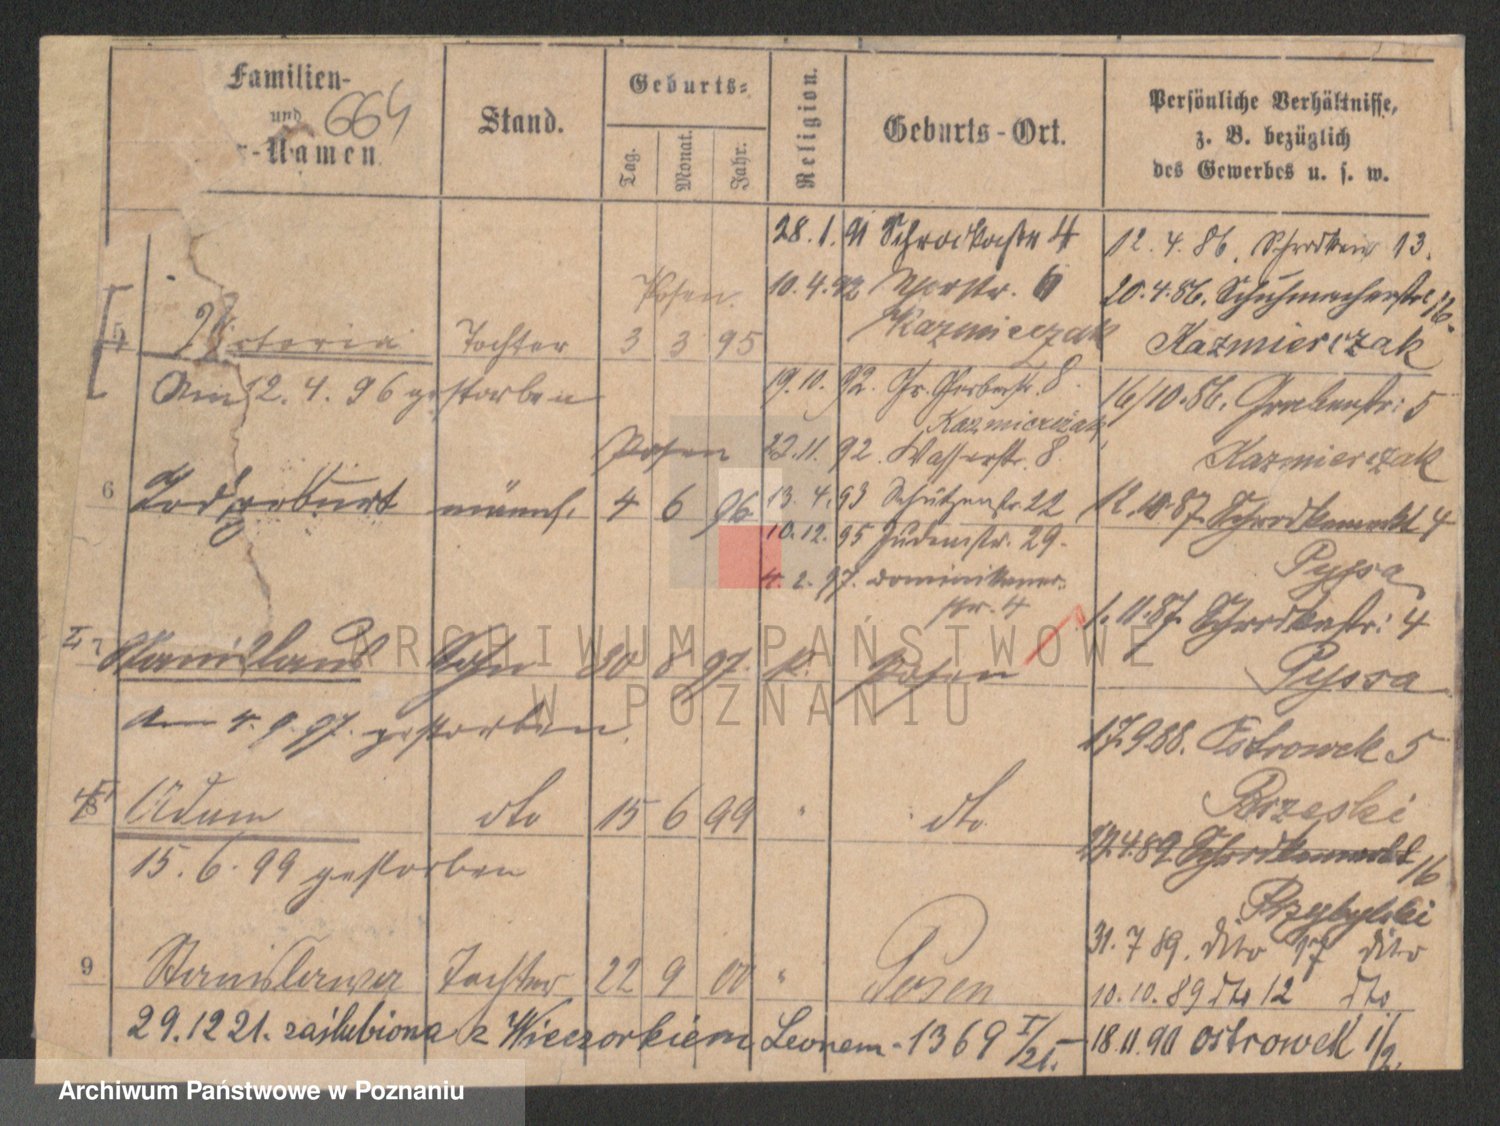 Familien-
und 664
-Namen.
Stand.
Geburts-
Tag.
Monat.
Jahr.
Religion.
Geburts-Ort.
Persönliche Verhältnisse,
z. B. bezüglich
des Gewerbes u. s. w.
5 Victoria Tochter Posen 3 3 95
Am 12. 4. 96 gestorben
6 Todgeburt männl. Posen 4 6 96
7 Stanislaus Sohn 30 8 97. k. Posen
Am 4. 9. 97. gestorben.
8 Adam dto 15 6 99 " dto.
15. 6. 99 gestorben
9 Stanislawa Tochter 22 9 00 " Posen
29.12 21. zaślubiona z Wieczorkiem Leonem - 1369 I/21.
28. 1. 91 Schrodkastr 4
10. 4. 92
Kazmierczak
19. 10. 92. Gr. Gerberstr. 8
Kazmierczak
22. 11. 92. Wasserstr. 8
13. 4. 93 Schützenstr. 22
10. 12. 95 Judenstr. 29.
4. 2. 97. Dominikaner-
str. 4
12. 4. 86. 13.
20. 4. 86. Schuhmacherstr. 16.
Kazmierczak
16/10. 86. Grabenstr: 5
Kazmierczak
12. 10. 87. Schrodkamarkt 4
Pyssa
1. 11. 87. Schrodkastr: 4
Pyssa
17 9 88. Ostrowek 5
Brzeski
12 4 89 Schrodkamarkt 16
Przybylski
31. 7 89. dito 17 dito
10. 10. 89 dto 12 dto
18. 11. 90 Ostrowek 1/2.
ARCHIWUM PAŃSTWOWE
W POZNANIU
Archiwum Państwowe w Poznaniu